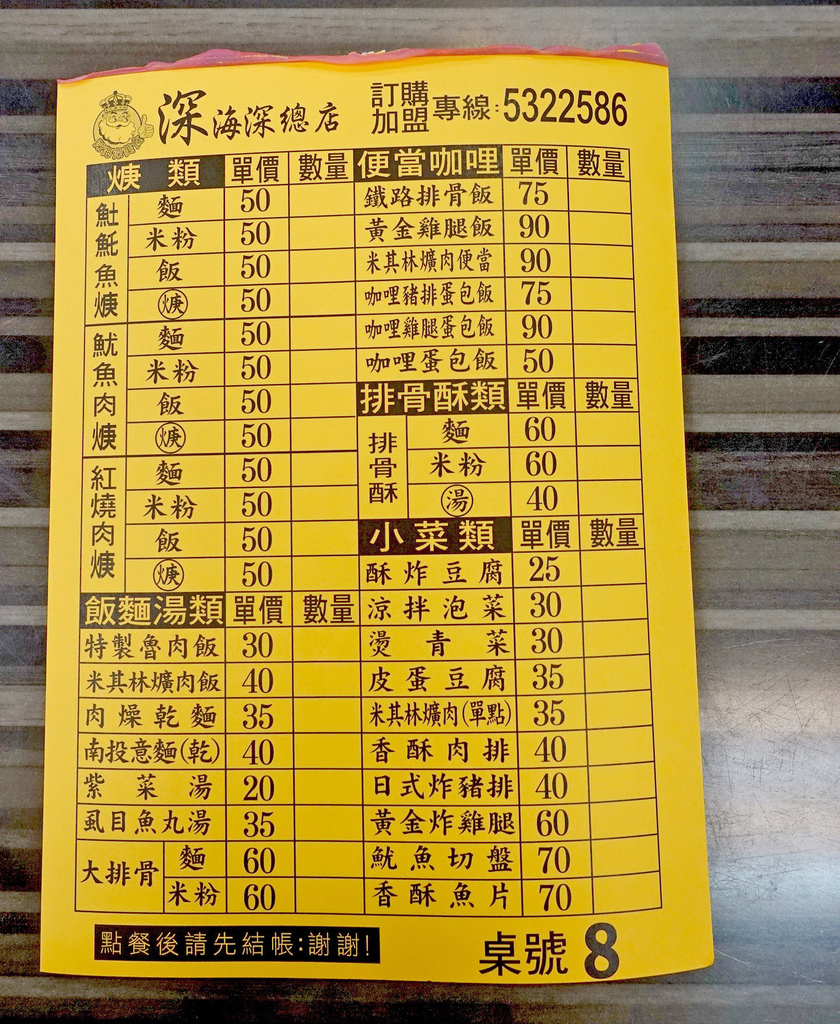 深海深總店 訂購加盟專線:5322586
焿類 單價 數量
魠魚焿 麵 50
米粉 50
飯 50
焿 50
魷魚肉焿 麵 50
米粉 50
飯 50
焿 50
紅燒肉焿 麵 50
米粉 50
飯 50
焿 50
飯麵湯類 單價 數量
特製魯肉飯 30
米其林爌肉飯 40
肉燥乾麵 35
南投意麵(乾) 40
紫菜湯 20
虱目魚丸湯 35
大排骨 麵 60
米粉 60
便當咖哩 單價 數量
鐵路排骨飯 75
黃金雞腿飯 90
米其林爌肉便當 90
咖哩豬排蛋包飯 75
咖哩雞腿蛋包飯 90
咖哩蛋包飯 50
排骨酥類 單價 數量
排骨酥 麵 60
米粉 60
湯 40
小菜類 單價 數量
酥炸豆腐 25
涼拌泡菜 30
燙青菜 30
皮蛋豆腐 35
米其林爌肉(單點) 35
香酥肉排 40
日式炸豬排 40
黃金炸雞腿 60
魷魚切盤 70
香酥魚片 70
點餐後請先結帳:謝謝!
桌號 8